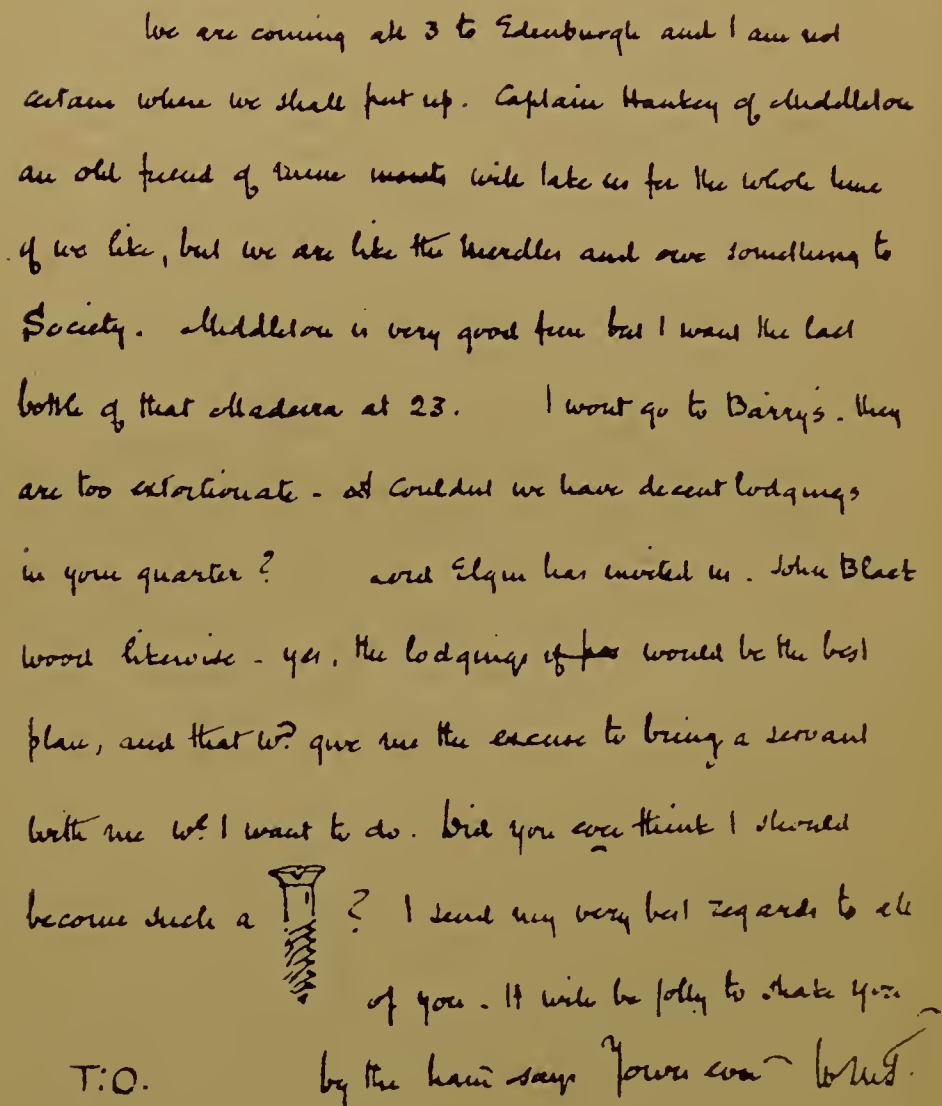 We are coming all 3 to Edinburgh and I am not
certain where we shall put up. Captain Hankey of Middleton
an old friend of mine wants will take us for the whole time
if we like, but we are like the Merdles and owe something to
Society. Middleton is very good fun but I want the last
bottle of that Madeira at 23. I wont go to Barry's. they
are too extortionate - couldnt we have decent lodgings
in your quarter? Lord Elgin has invited us. John Black
wood likewise - yes, the lodgings if would be the best
plan, and that wd. give me the excuse to bring a servant
with me wh. I want to do. Did you ever think I should
become such a ? I send my very best regards to all
of you. It will be jolly to shake you
T.O. by the hand says Yours ever WMT.